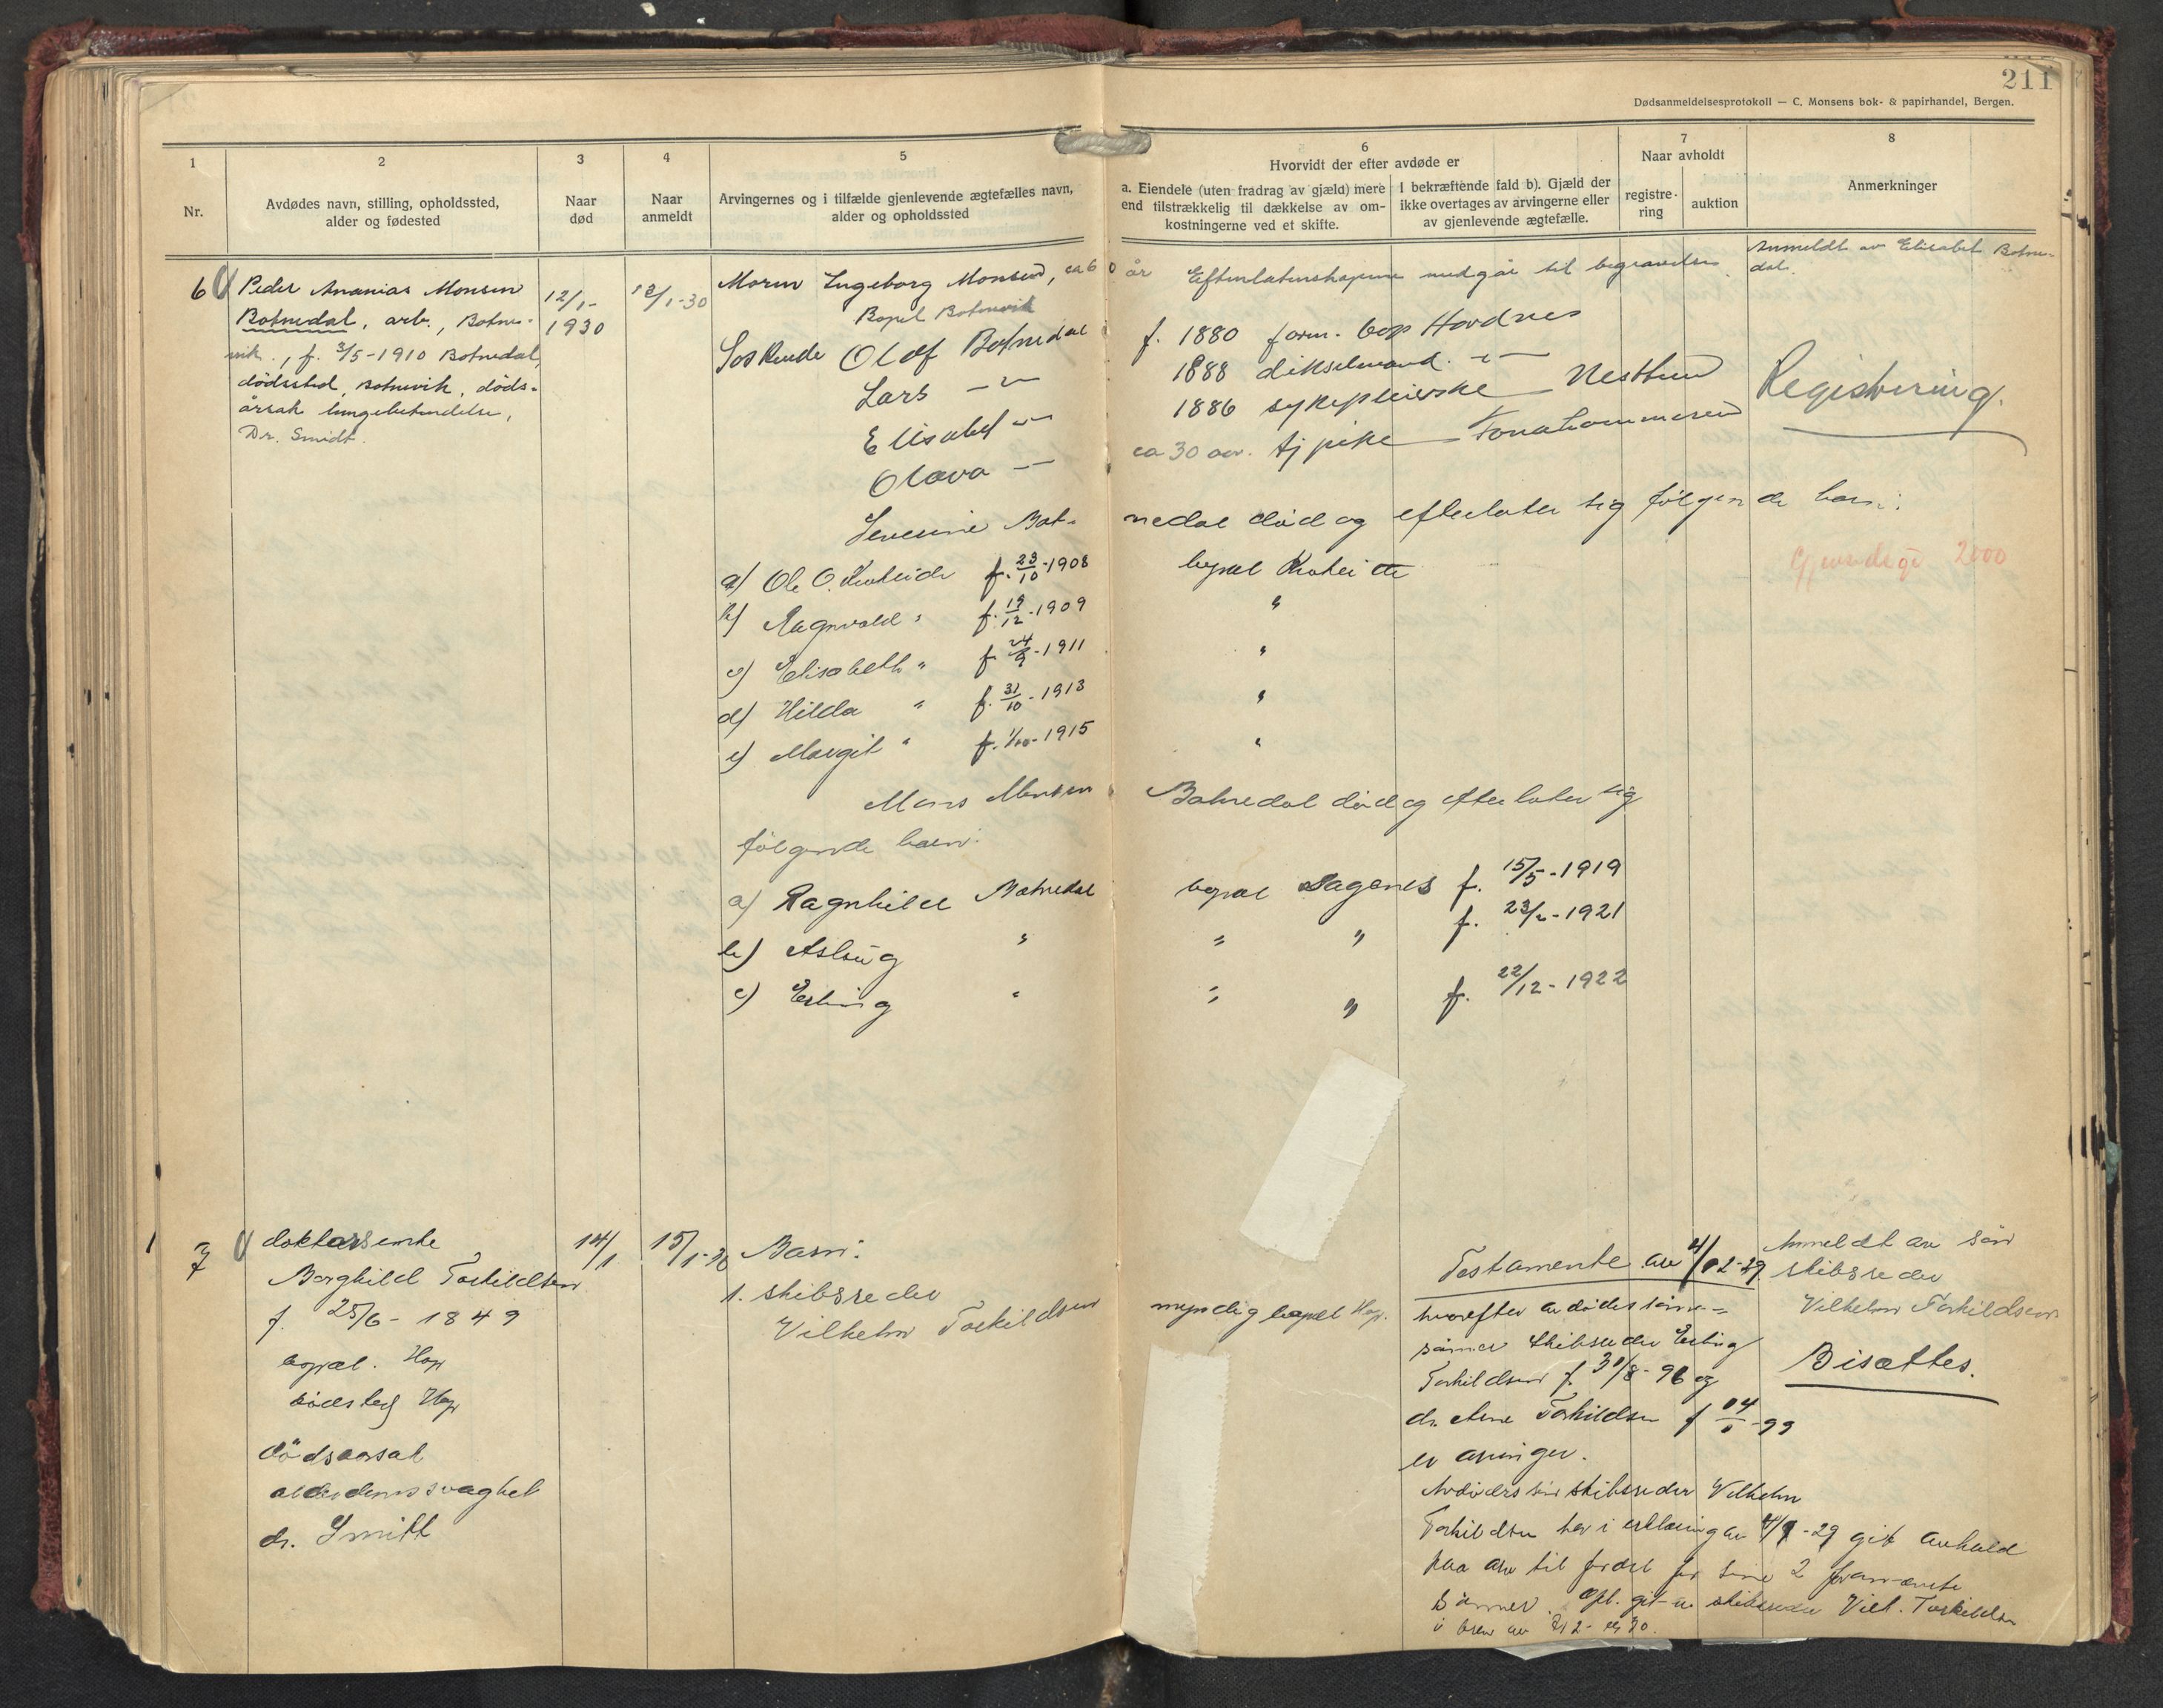 211
Dødsanmeldelsesprotokoll — C. Monsens bok- & papirhandel, Bergen.
1
2
3
4
5
6
7
8
Nr.
Avdødes navn, stilling, opholdssted,
alder og fødested
Naar
død
Naar
anmeldt
Arvingernes og i tilfælde gjenlevende ægtefælles navn,
alder og opholdssted
Hvorvidt der efter avdøde er
a. Eiendele (uten fradrag av gjæld) mere
end tilstrækkelig til dækkelse av om-
kostningerne ved et skifte.
I bekræftende fald b). Gjæld der
ikke overtages av arvingerne eller
av gjenlevende ægtefælle.
Naar avholdt
registre-
ring
auktion
Anmerkninger
6
Peder Ananias Monsen
Botnedal, arb., Botne-
vik., f. 3/5-1910 Botnedal,
dödssted Botnevik, döds-
årsak lungebetendelse,
Dr. Smidt.
12/1-
1930
13/1-30
Moren Ingeborg Monsen, ca 60 år
Bopel Botnevik
Efterlatenskapene medgår til begravelsen.
Anmeldt av Elisabet Botne-
dal.
Søskende Olaf Botnedal f. 1880 form. bop Hordnes
Lars —"— 1888 dikselmand. —"—
Elisabet —"— 1886 sykepleierske — Nesttun
Olava —"— ca 30 aar. tj pike — Fanahammeren
Registrering.
Severine Botnedal død og efterlater sig følgende barn:
a) Ole O. Krokeide f. 23/10-1908 bopæl Krokeide
Gjenstdsgj 2000
b) Ragnvald " f. 19/12-1909 "
c) Elisabeth " f. 24/9-1911 "
d) Hilda " f. 31/10-1913 "
e) Margit " f. 1/10-1915 "
Mons Monsen Botnedal død og efterlater sig
følgende barn:
a) Ragnhild Botnedal bopæl Hagenes f. 15/5-1919
b) Aslaug " " " f. 23/2-1921
c) Erling " " " f. 22/12-1922
7
doktorsenke
Borghild Torkildsen
f. 25/6-1849
bopæl. Hop
dødssted Hop
dödsaarsak
alderdomssvaghet
dr. Smitt
14/1
15/1-30
Barn:
1. skibsreder
Vilhelm Torkildsen
myndig bopæl Hop.
Testamente av 4/12-29
hvorefter avdødes sønne-
sønner skibsreder Erling
Torkildsen f. 31/8-96 og
dr. Arne Torkildsen f 04/1-99
er arvinger.
Avdødes søn skibsreder Vilhelm
Torkildsen har i erklæring av 4/9-29 git avkald
paa arv til fordel for sine 2 fornævnte
sønner. Opl. git av skibsreder Vilh. Torkildsen
i brev av
Anmeldt av søn
skibsreder
Vilhelm Torkildsen
Bisættes.